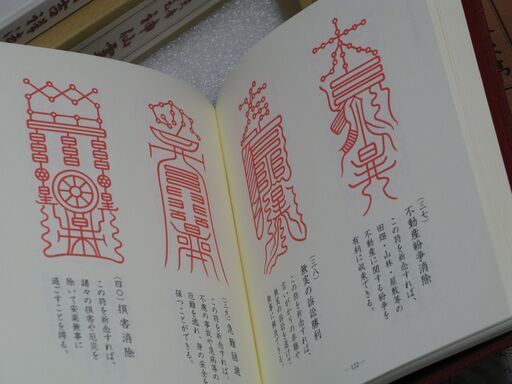 (三七)
不動産紛争消除
この符を祈念すれば、
田畑・山林・屋敷等の
不動産に関する紛争を
有利に収束できる。
(三八)
彼実の訴訟勝利
この符を祈念すれば、
(三九)危難回避
この符を祈念すれば、
不慮の事故、急病等の
危難を逃れ、身の安全を
保つことができる。
(四〇)損害消除
この符を祈念すれば、
諸々の損害や厄災を
除いて安楽無事に
過ごすことを得る。
—122—
神仙